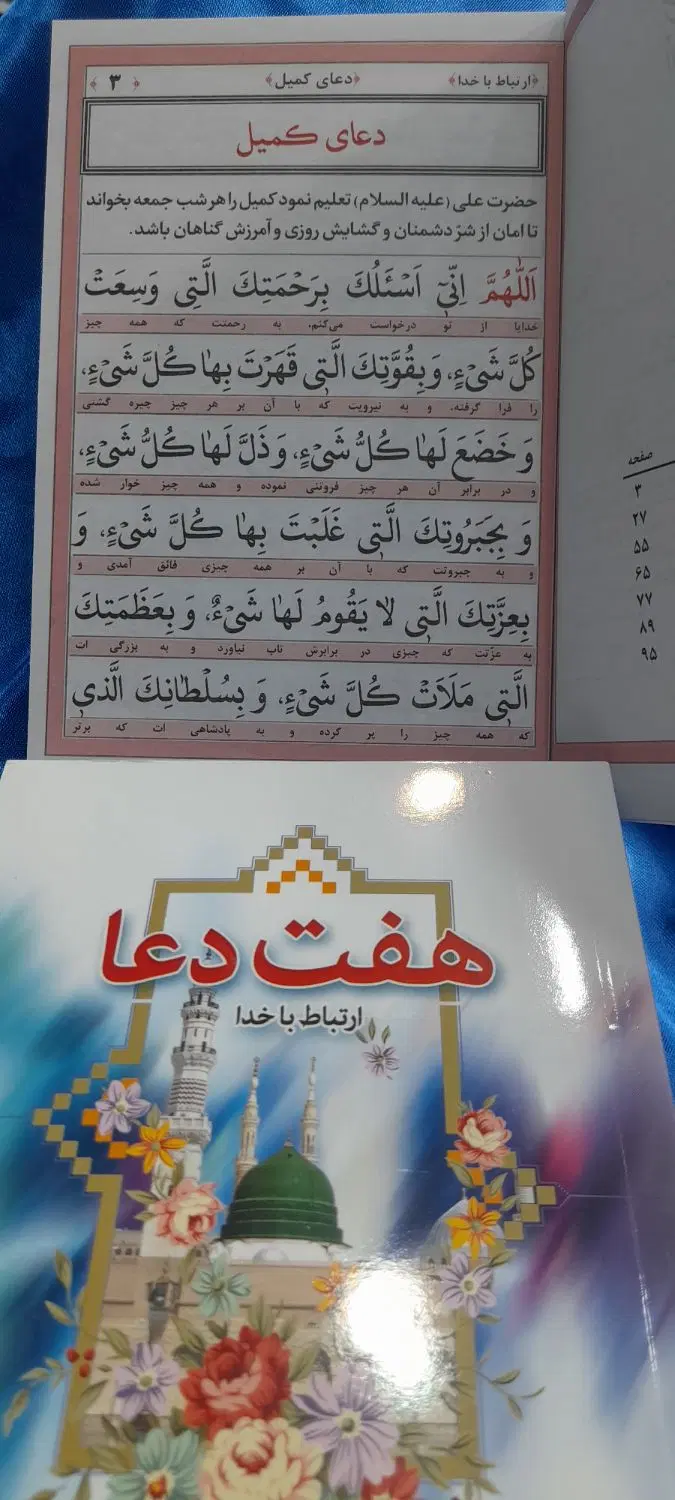 ﴿ارتباط با خدا﴾ ﴿دعای کمیل﴾ ﴿۳﴾
دعای کمیل
حضرت علی (علیه السلام) تعلیم نمود کمیل را هر شب جمعه بخواند
تا امان از شرّ دشمنان و گشایش روزی و آمرزش گناهان باشد.
اَللّٰهُمَّ اِنّیٓ اَسْئَلُكَ بِرَحْمَتِكَ الَّتِی وَسِعَتْ
خدایا از تو درخواست می‌کنم، به رحمتت که همه چیز
کُلَّ شَیْءٍ، وَ بِقُوَّتِكَ الَّتِی قَهَرْتَ بِهٰا کُلَّ شَیْءٍ،
را فرا گرفته، و به نیرویت که با آن بر هر چیز چیره گشتی
وَ خَضَعَ لَهٰا کُلُّ شَیْءٍ، وَ ذَلَّ لَهٰا کُلُّ شَیْءٍ،
و در برابر آن هر چیز فروتنی نموده و همه چیز خوار شده
وَ بِجَبَرُوتِكَ الَّتِی غَلَبْتَ بِهٰا کُلَّ شَیْءٍ، وَ
و به جبروتت که با آن بر همه چیزی فائق آمدی و
بِعِزَّتِكَ الَّتِی لٰا یَقُومُ لَهٰا شَیْءٌ، وَ بِعَظَمَتِكَ
به عزّتت که چیزی در برابرش تاب نیاورد و به بزرگی ات
الَّتِی مَلَاَتْ کُلَّ شَیْءٍ، وَ بِسُلْطٰانِكَ الَّذِی
که همه چیز را پر کرده و به پادشاهی ات که برتر
صفحه
۳
۲۷
۵۵
۶۵
۷۷
۸۹
۹۵
هفت دعا
ارتباط با خدا